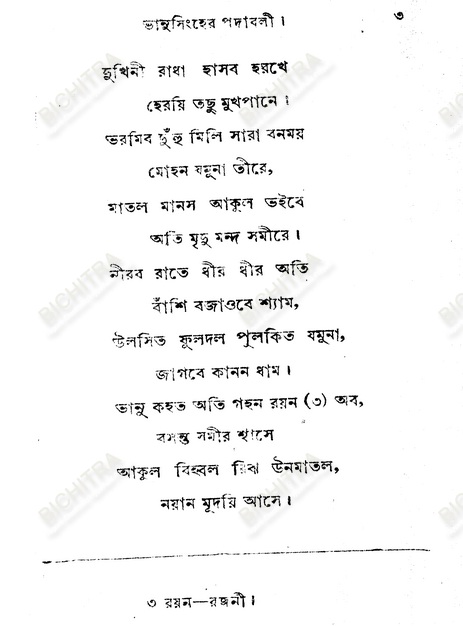 ভানুসিংহের পদাবলী। ৩
দুখিনী রাধা হাসব হরখে
হেরয়ি তছু মুখপানে।
ভরমিব দুঁহু মিলি সারা বনময়
মোহন যমুনা তীরে,
মাতল মানস আকুল ভইবে
অতি মৃদু মন্দ সমীরে।
নীরব রাতে ধীর ধীর অতি
বাঁশি বজাওবে শ্যাম,
উলসিত ফুলদল পুলকিত যমুনা,
জাগবে কানন ধাম।
ভানু কহত অতি গহন রয়ন (৩) অব,
বসন্ত সমীর শ্বাসে
আকুল বিহ্বল উনমাতল,
নয়ান মূদয়ি আসে।
৩ রয়ন—রজনী।
BICHITRA
BICHITRA
BICHITRA
BICHITRA
BICHITRA
BICHITRA
BICHITRA
BICHITRA